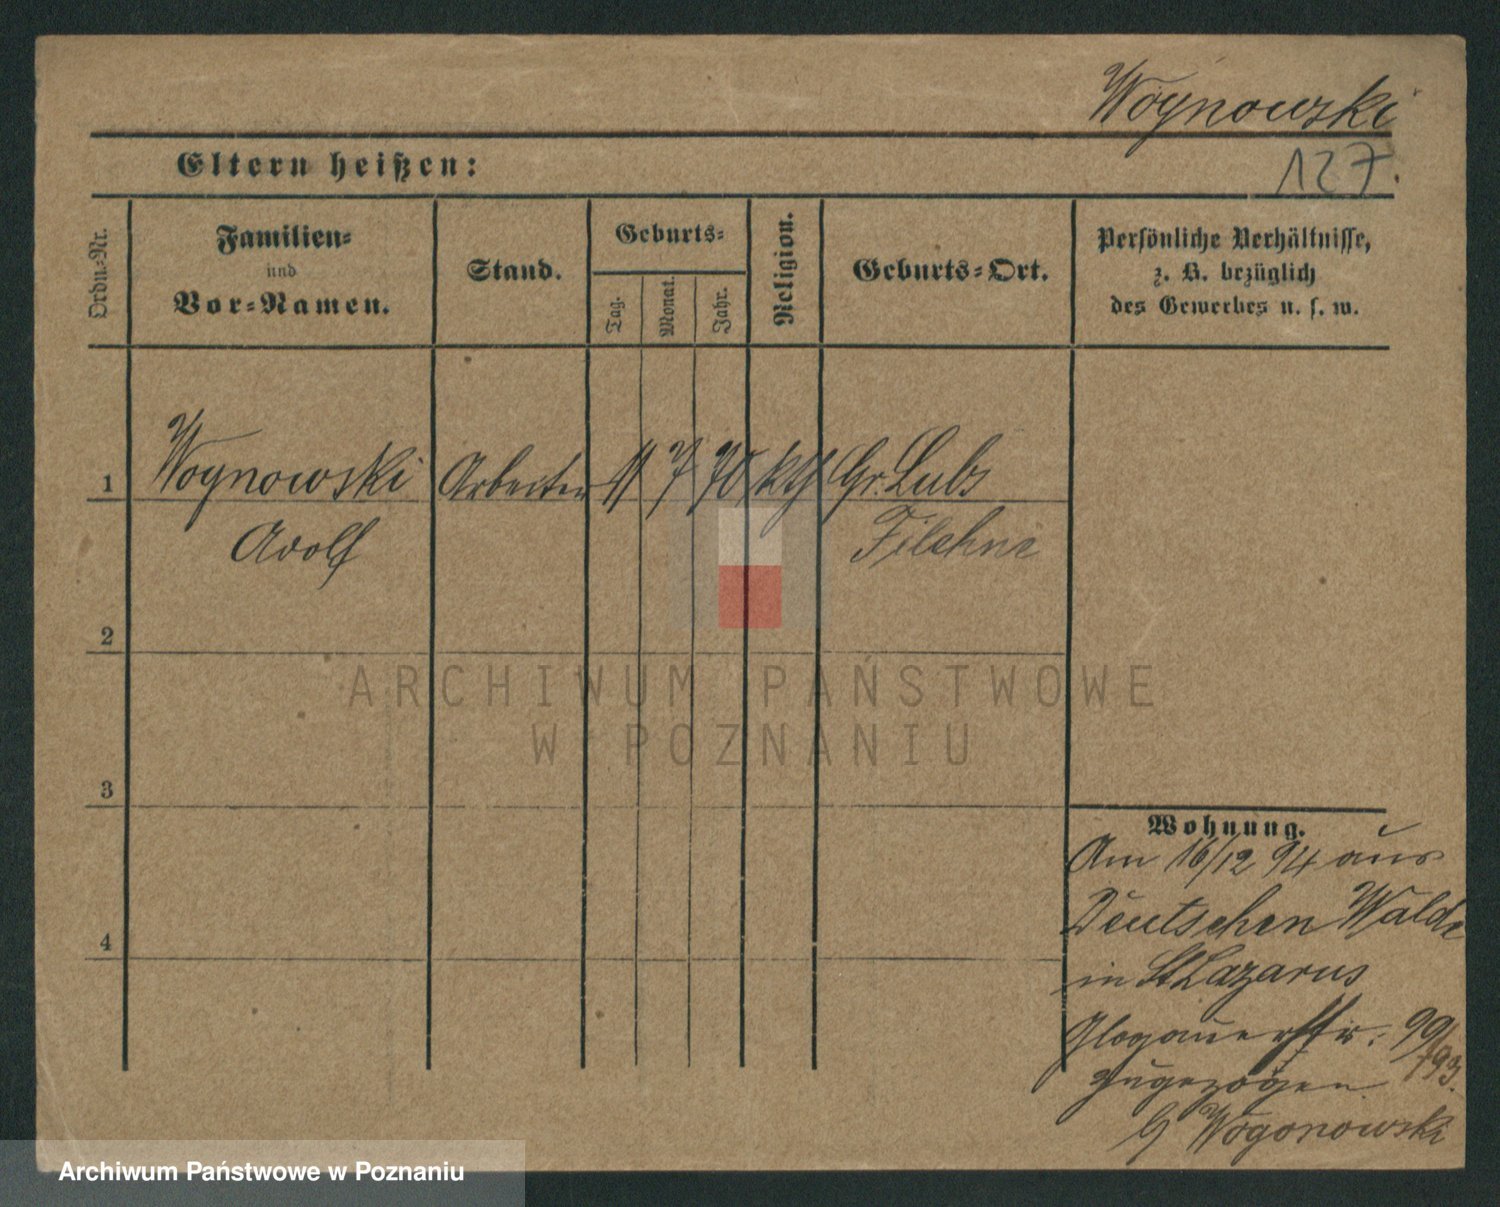 Woynowski
127.
Eltern heißen:
Ordn.-Nr.
Familien-
und
Vor-Namen.
Stand.
Geburts-
Tag.
Monat.
Jahr.
Religion.
Geburts-Ort.
Persönliche Verhältnisse,
z. B. bezüglich
des Gewerbes u. s. w.
1
Woynowski
Adolf
Arbeiter
11
7
70
kth
Gr. Lubs
Filehne
2
3
4
Wohnung.
Am 16/12 94 aus
Deutschen Walde
in St Lazarus
Glogauerstr. 99/
193.
zugezogen
Wogonowski
ARCHIWUM PAŃSTWOWE
W POZNANIU
Archiwum Państwowe w Poznaniu